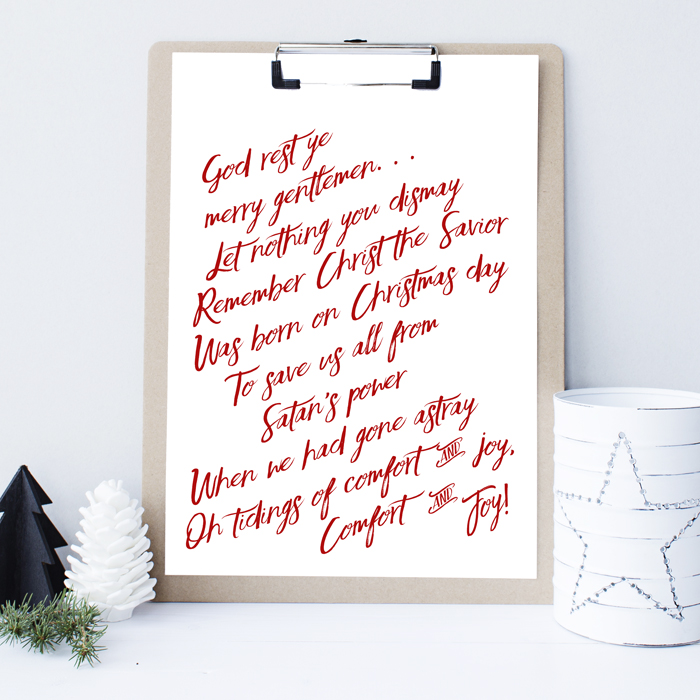 God rest ye
merry gentlemen. . .
Let nothing you dismay
Remember Christ the Savior
Was born on Christmas day
To save us all from
Satan's power
When we had gone astray
Oh tidings of comfort AND joy,
Comfort AND Joy!